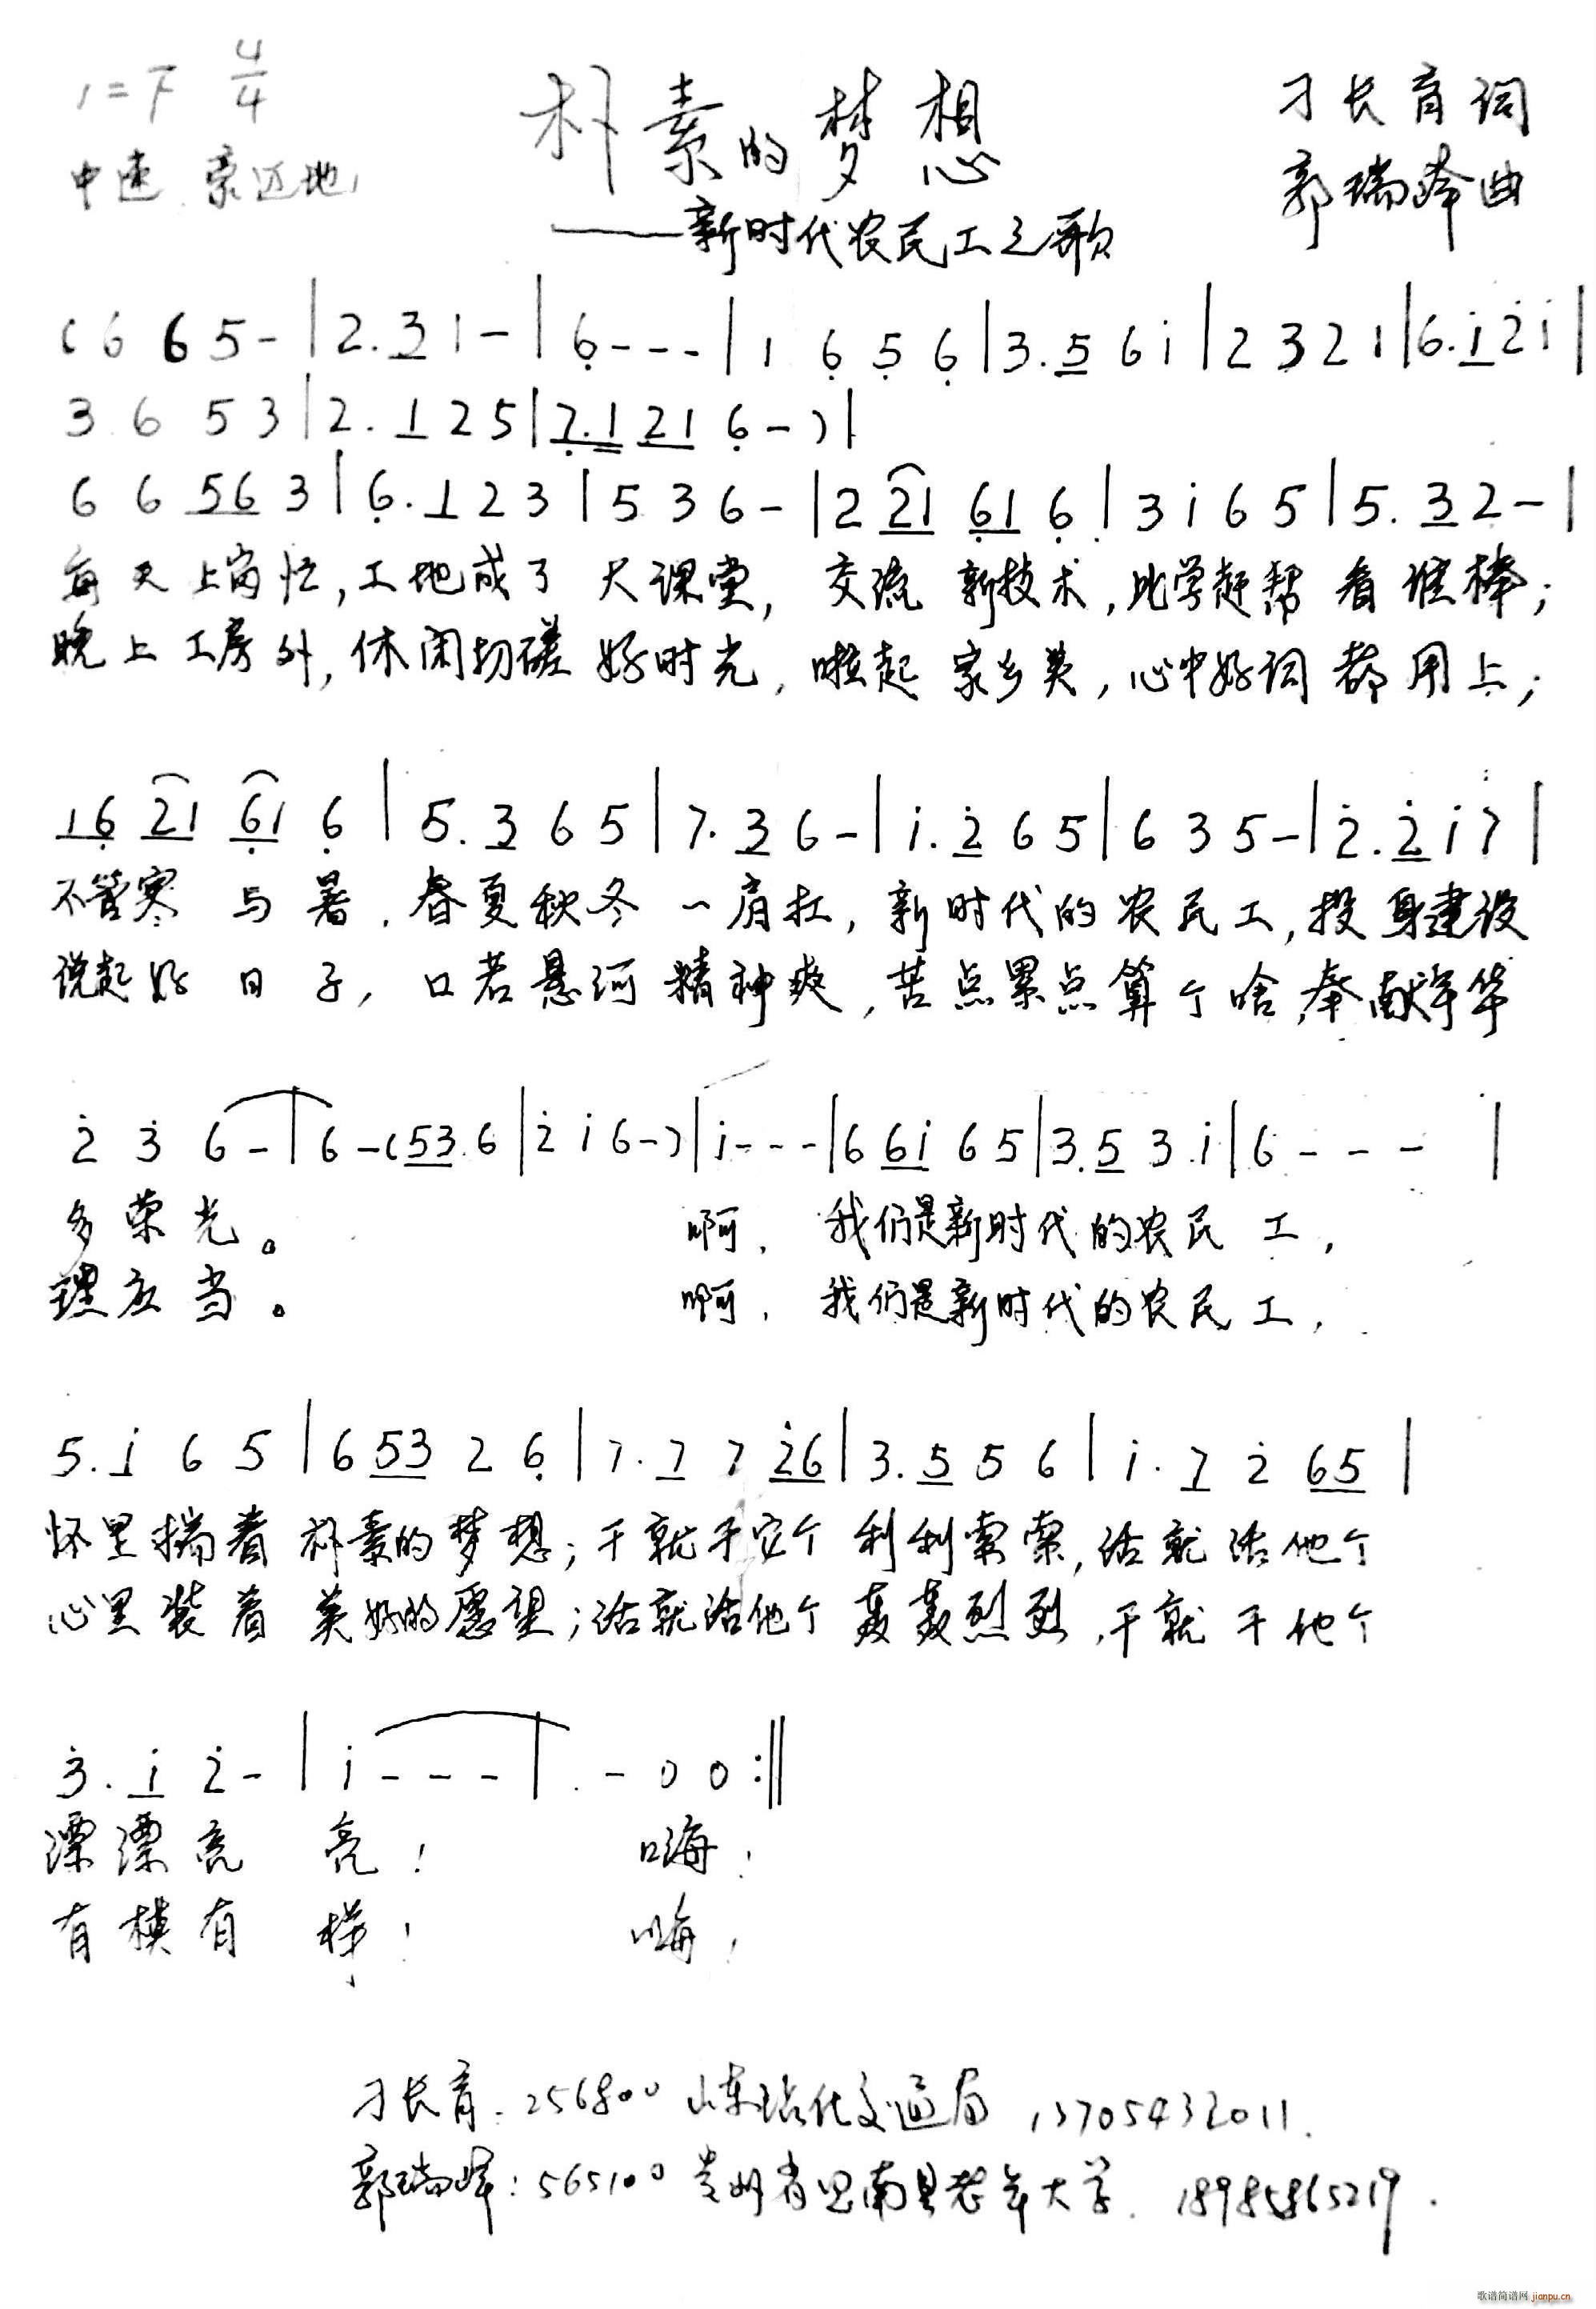 1=F 4/4
朴素的梦想
刁长育词
中速 豪迈地
郭瑞峰曲
——新时代农民工之歌
(6 6 5 - | 2. 3 1 - | 6 - - - | 1 6 5 6 | 3. 5 6 i | 2 3 2 1 | 6. i 2 i |
3 6 5 3 | 2. 1 2 5 | 7. 1 2 1 6 - ) |
6 6 5 6 3 | 6. 1 2 3 | 5 3 6 - | 2 2 1 6 1 6 | 3 i 6 5 | 5. 3 2 - |
每天上岗忙,工地成了大课堂,交流新技术,比学赶帮看谁棒;
晚上工房外,休闲切磋好时光,啦起家乡美,心中好词都用上;
1 6 2 1 6 1 6 | 5. 3 6 5 | 7. 3 6 - | i. 2 6 5 | 6 3 5 - | 2. 2 i 7 |
不管寒与暑,春夏秋冬一肩扛,新时代的农民工,投身建设
说起好日子,口若悬河精神爽,苦点累点算个啥,奉献年华
2 3 6 - | 6 - (5 3 6 | 2 i 6 -) | i - - - | 6 6 i 6 5 | 3. 5 3 i | 6 - - - |
多荣光。 啊,我们是新时代的农民工,
理应当。 啊,我们是新时代的农民工,
5. i 6 5 | 6 5 3 2 6 | 7. 7 7 2 6 | 3. 5 5 6 | i. 7 2 6 5 |
怀里揣着朴素的梦想;干就干它个利利索索,活就活他个
心里装着美好的愿望;活就活他个轰轰烈烈,干就干他个
3. i 2 - | i - - - | - 0 0 :||
漂漂亮亮! 嗨!
有模有样! 嗨!
刁长育:256800 山东沾化交通局 13705432011.
郭瑞峰:565100 贵州省思南县老年大学. 18985865219.
歌谱简谱网 jianpu.cn